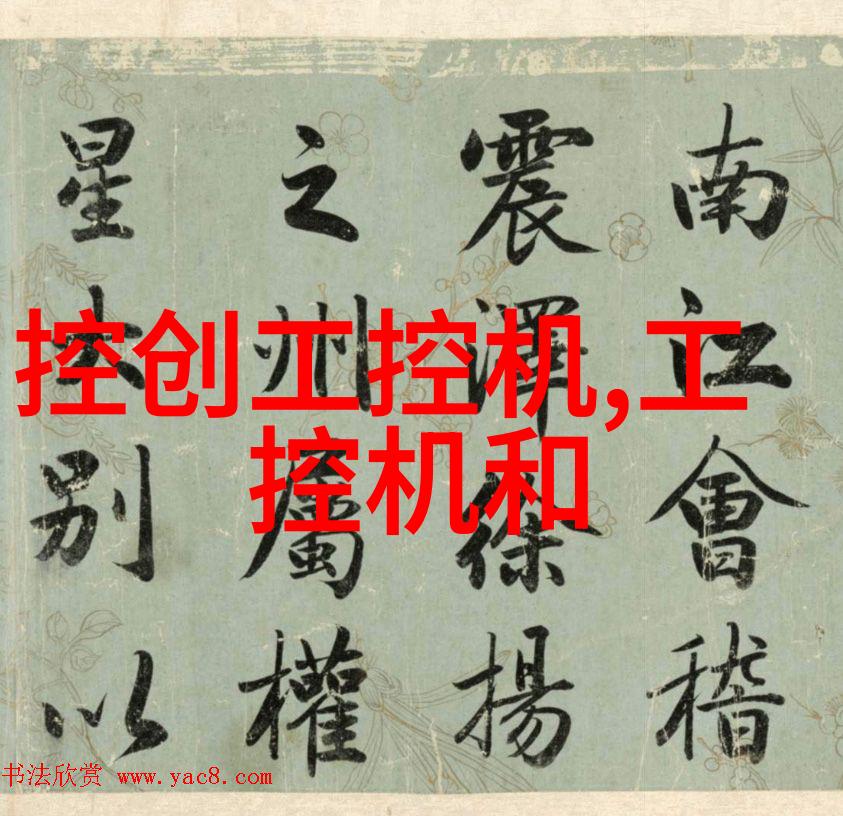 南江會稽
震澤徐揚
之州屬權
星別以
控创工控机,工
控机和
书法欣赏 www.yac8.com